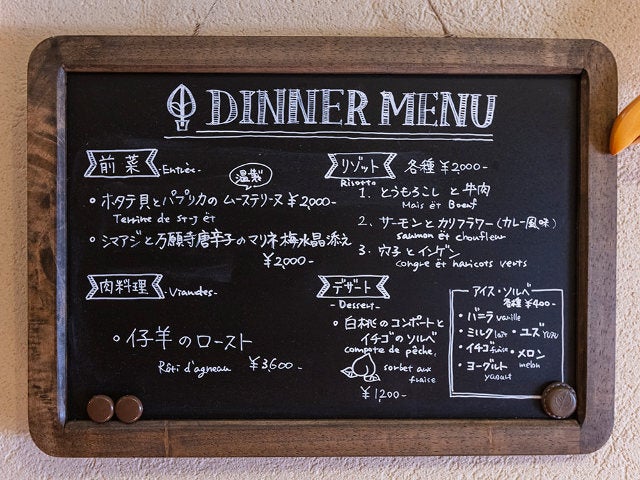 DINNER MENU
前菜 -Entrée-
温製
・ホタテ貝とパプリカの ムーステリーヌ ¥2,000-
Terrine de St-J et
・シマアジと万願寺唐辛子のマリネ 梅水晶添え
¥2,000-
肉料理 -Viandes-
・仔羊のロースト
Rôti d'agneau ¥3,600-
リゾット 各種 ¥2,000-
Risotto
1. とうもろこし と 牛肉
Maïs et Boeuf
2. サーモンとカリフラワー(カレー風味)
saumon et choufleur
3. 穴子とインゲン
congre et haricots verts
デザート
-Dessert-
・白桃のコンポートと
イチゴのソルベ
compote de pêche,
sorbet aux
fraise
¥1,200-
アイス・ソルベ
各種 ¥400-
・バニラ vanille
・ミルク lait ・ユズ YUZU
・イチゴ fraise ・メロン
melon
・ヨーグルト
yaourt